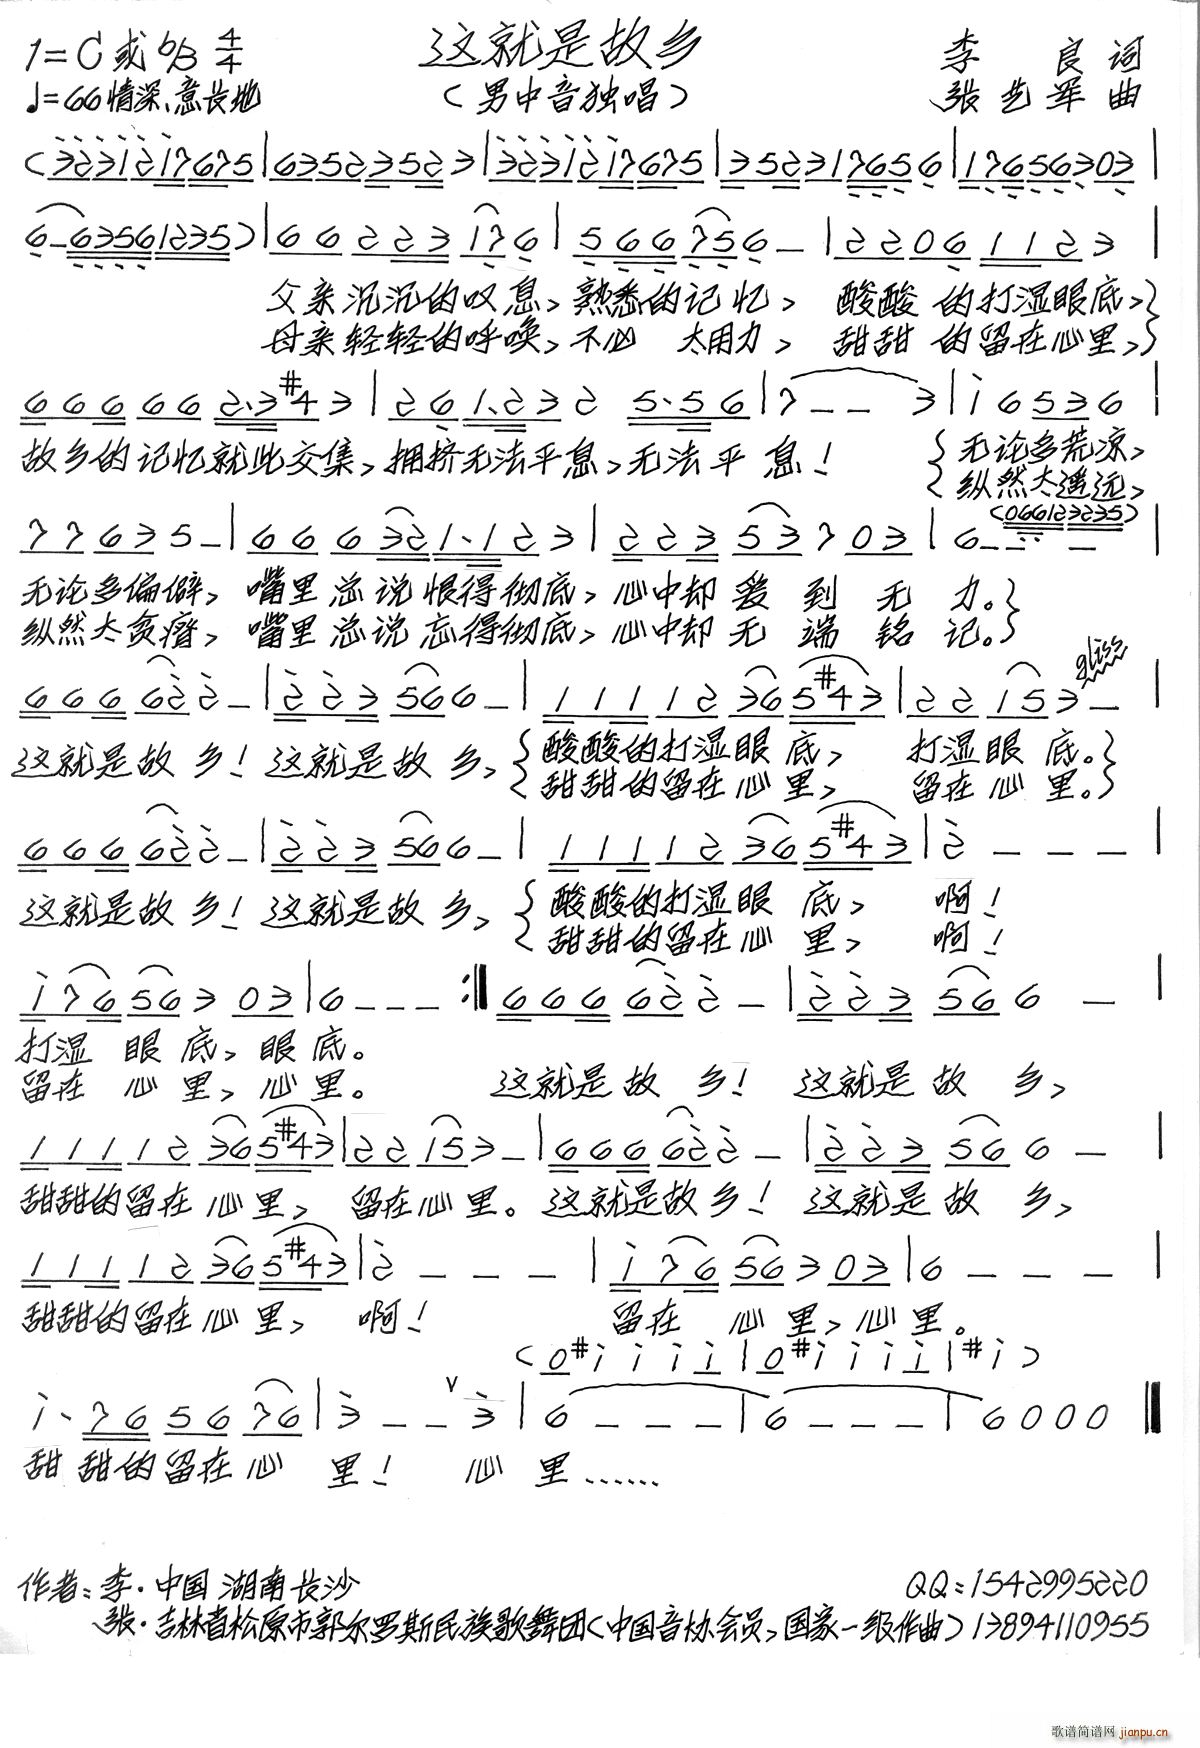 1=C或♭B 4/4 这就是故乡 李良词
♩=66 情深、意长地 (男中音独唱) 张艺军曲
(3231217675|63523523|3231217675|352317656|17656303|
6-63561235)|66223176|566756-|22061123|
父亲沉沉的叹息,熟悉的记忆,酸酸的打湿眼底,
母亲轻轻的呼唤,不必太用力,甜甜的留在心里,
666662·3#43|261·232 5·56|7--3|i6536|
故乡的记忆就此交集,拥挤无法平息,无法平息! 无论多荒凉,
纵然太遥远,
(066123235)
77635-|666321·123|22353703|6---|
无论多偏僻,嘴里总说恨得彻底,心中却爱到无力。
纵然太贫瘠,嘴里总说忘得彻底,心中却无端铭记。
gliss
666622-|223566-|11112365#43|22153-|
这就是故乡!这就是故乡,酸酸的打湿眼底,打湿眼底。
甜甜的留在心里,留在心里。
666622-|223566-|11112365#43|2---|
这就是故乡!这就是故乡,酸酸的打湿眼底,啊!
甜甜的留在心里,啊!
i7656303|6---:‖666622-|223566-|
打湿眼底,眼底。
留在心里,心里。 这就是故乡!这就是故乡,
11112365#43|22153-|666622-|223566-|
甜甜的留在心里,留在心里。这就是故乡!这就是故乡,
11112365#43|2---|i7656303|6---|
甜甜的留在心里,啊! 留在心里,心里。
(0#iiii|0#iiii|#i)
i·765676|3--∨3|6---|6---|6000‖
甜甜的留在心里!心里……
作者:李·中国湖南长沙 QQ:1542995220
张·吉林省松原市郭尔罗斯民族歌舞团(中国音协会员,国家一级作曲)13894110955
歌谱简谱网 jianpu.cn